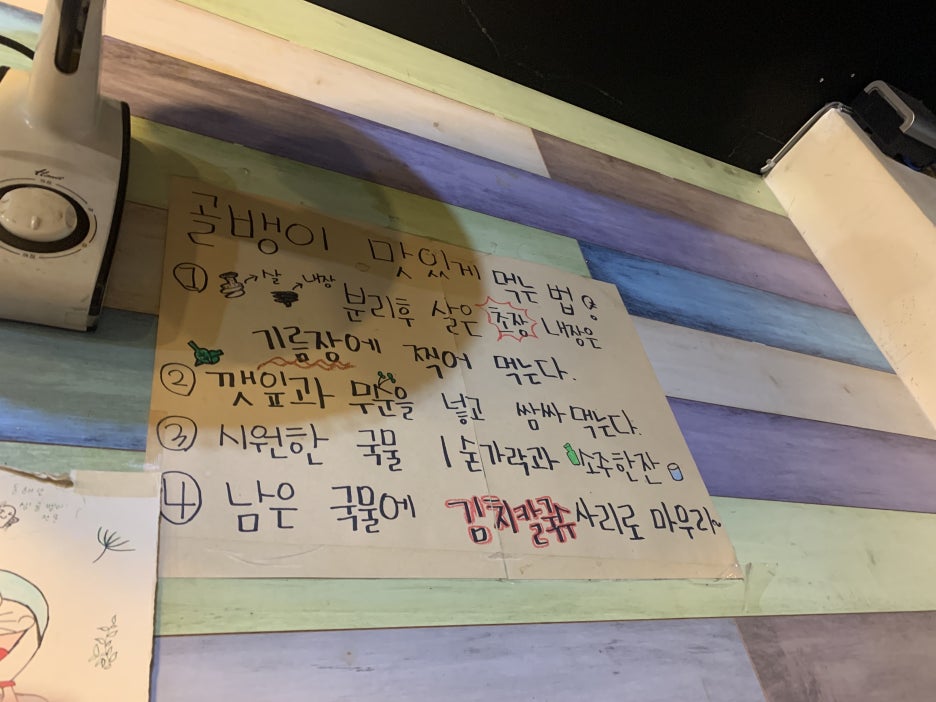 골뱅이 맛있게 먹는 법
① 살 내장 분리후 살은 초장 내장은
기름장에 찍어 먹는다.
② 깻잎과 무순을 넣고 쌈싸 먹는다.
③ 시원한 국물 1숟가락과 소주한잔
④ 남은 국물에 김치칼국수 사리로 마무리~